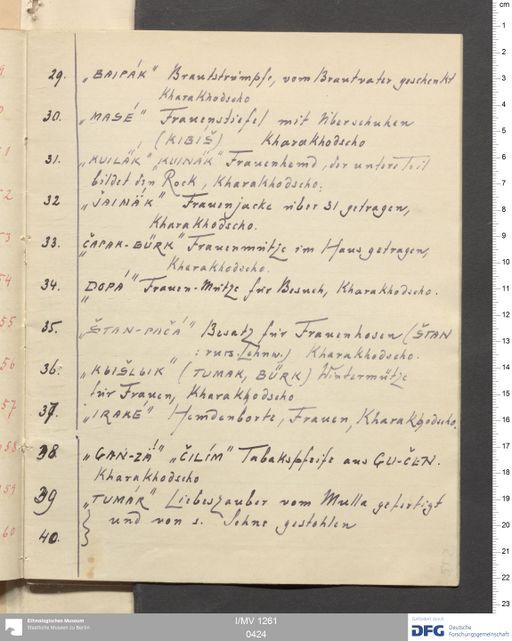 29. „BAIPÁK" Brautstrümpfe, vom Brautvater geschenkt
Kharakhodscho
30. „MASÉ" Frauenstiefel mit Überschuhen
(KIBIŠ) Kharakhodscho
31. „KUILÄK" „KUINÄK" Frauenhemd, der untere Teil
bildet den Rock, Kharakhodscho.
32 „JAINÄK" Frauenjacke über 31 getragen,
Kharakhodscho.
33. „ČAPAK-BÜRK" Frauenmütze im Haus getragen,
Kharakhodscho.
34. „DOPÁ" Frauen-Mütze für Besuch, Kharakhodscho.
35. „ŠTAN-PAČÁ" Besatz für Frauenhosen (ŠTAN
: russ. Lehnw.) Kharakhodscho.
36. „KBIŠLBIK" (TUMAK, BÜRK) Wintermütze
für Frauen, Kharakhodscho
37. „IRAKÉ" Hemdenborte, Frauen, Kharakhodscho.
38 „GAN-ZÁ" „ČILÍM" Tabakspfeife aus GU-ČEN.
Kharakhodscho
39 „TUMÁR" Liebeszauber vom Mulla gefertigt
40. und von s. Sohne gestohlen
55
56
57
58
59
60
Ethnologisches Museum
Staatliche Museen zu Berlin
I/MV 1261
0424
Gefördert durch
DFG Deutsche
Forschungsgemeinschaft
cm
1
2
3
4
5
6
7
8
9
10
11
12
13
14
15
16
17
18
19
20
21
22
23